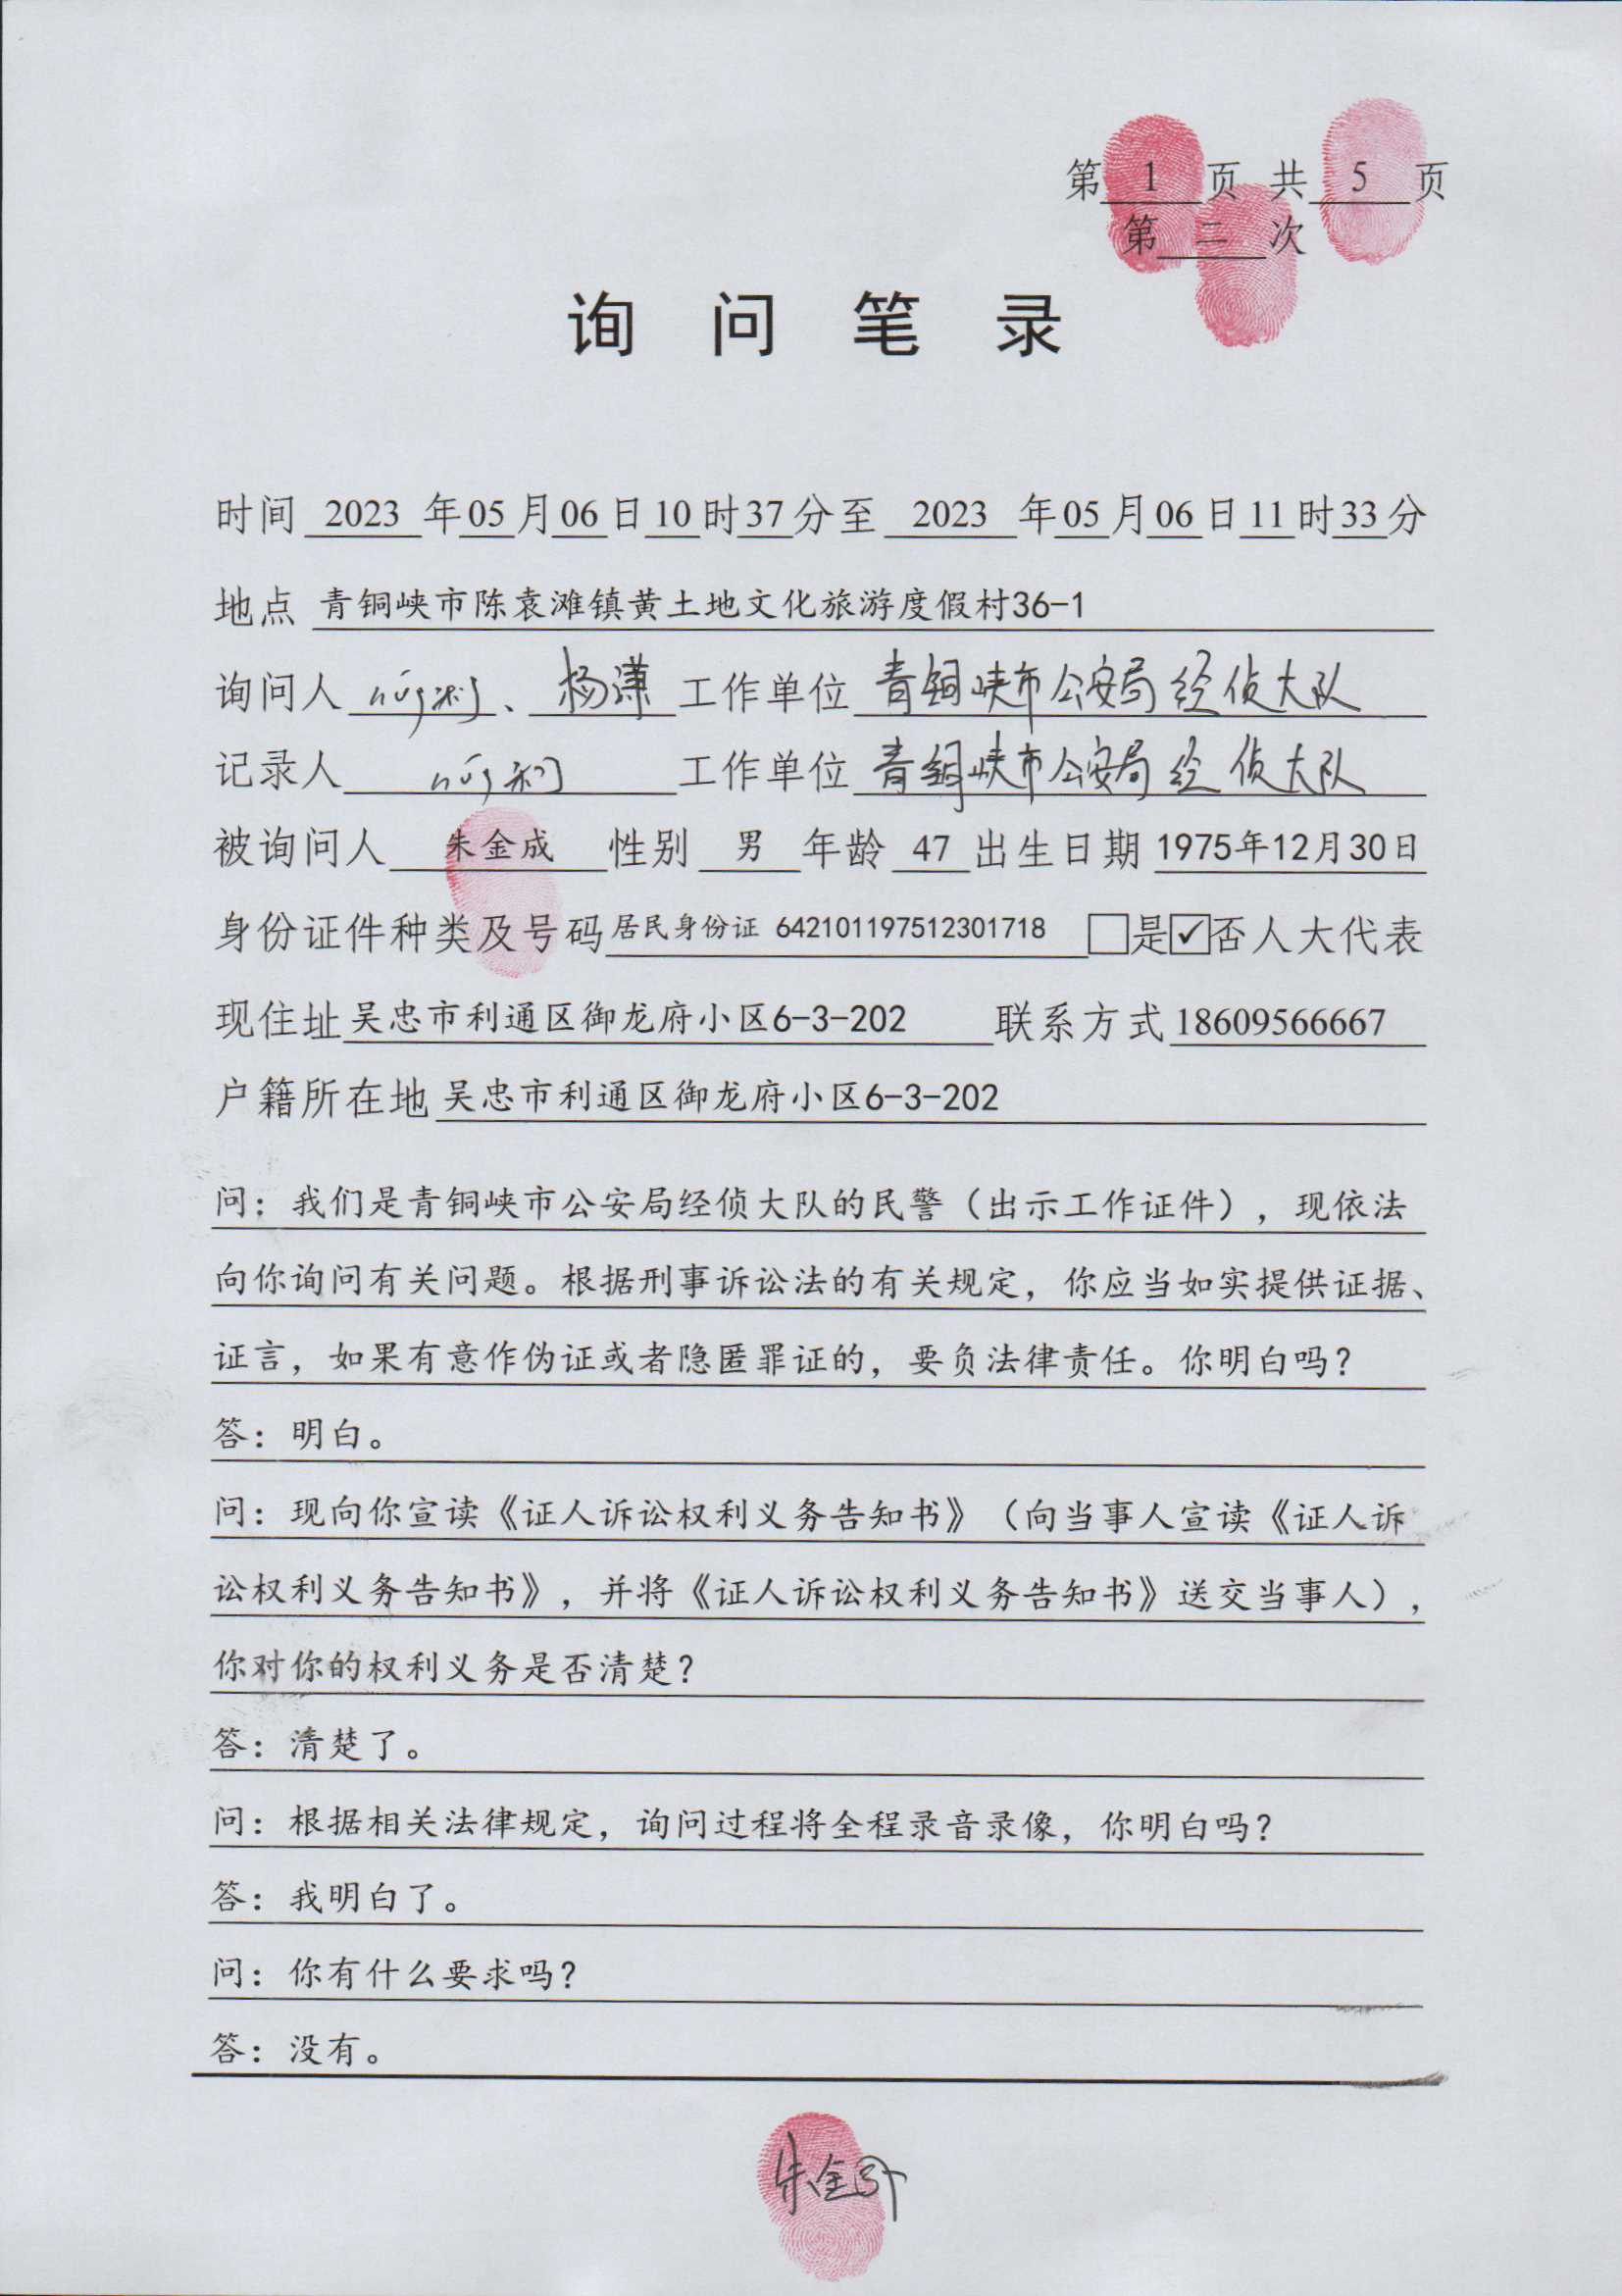 第 1 页 共 5 页
第 二 次
询 问 笔 录
时间 2023 年05月06日10时37分至 2023 年05月06日11时33分
地点 青铜峡市陈袁滩镇黄土地文化旅游度假村36-1
询问人 、杨潇 工作单位 青铜峡市公安局经侦大队
记录人 工作单位 青铜峡市公安局经侦大队
被询问人 朱金成 性别 男 年龄 47 出生日期 1975年12月30日
身份证件种类及号码 居民身份证 642101197512301718 □是☑否人大代表
现住址 吴忠市利通区御龙府小区6-3-202 联系方式 18609566667
户籍所在地 吴忠市利通区御龙府小区6-3-202
问：我们是青铜峡市公安局经侦大队的民警（出示工作证件），现依法
向你询问有关问题。根据刑事诉讼法的有关规定，你应当如实提供证据、
证言，如果有意作伪证或者隐匿罪证的，要负法律责任。你明白吗？
答：明白。
问：现向你宣读《证人诉讼权利义务告知书》（向当事人宣读《证人诉
讼权利义务告知书》，并将《证人诉讼权利义务告知书》送交当事人），
你对你的权利义务是否清楚？
答：清楚了。
问：根据相关法律规定，询问过程将全程录音录像，你明白吗？
答：我明白了。
问：你有什么要求吗？
答：没有。
朱金成